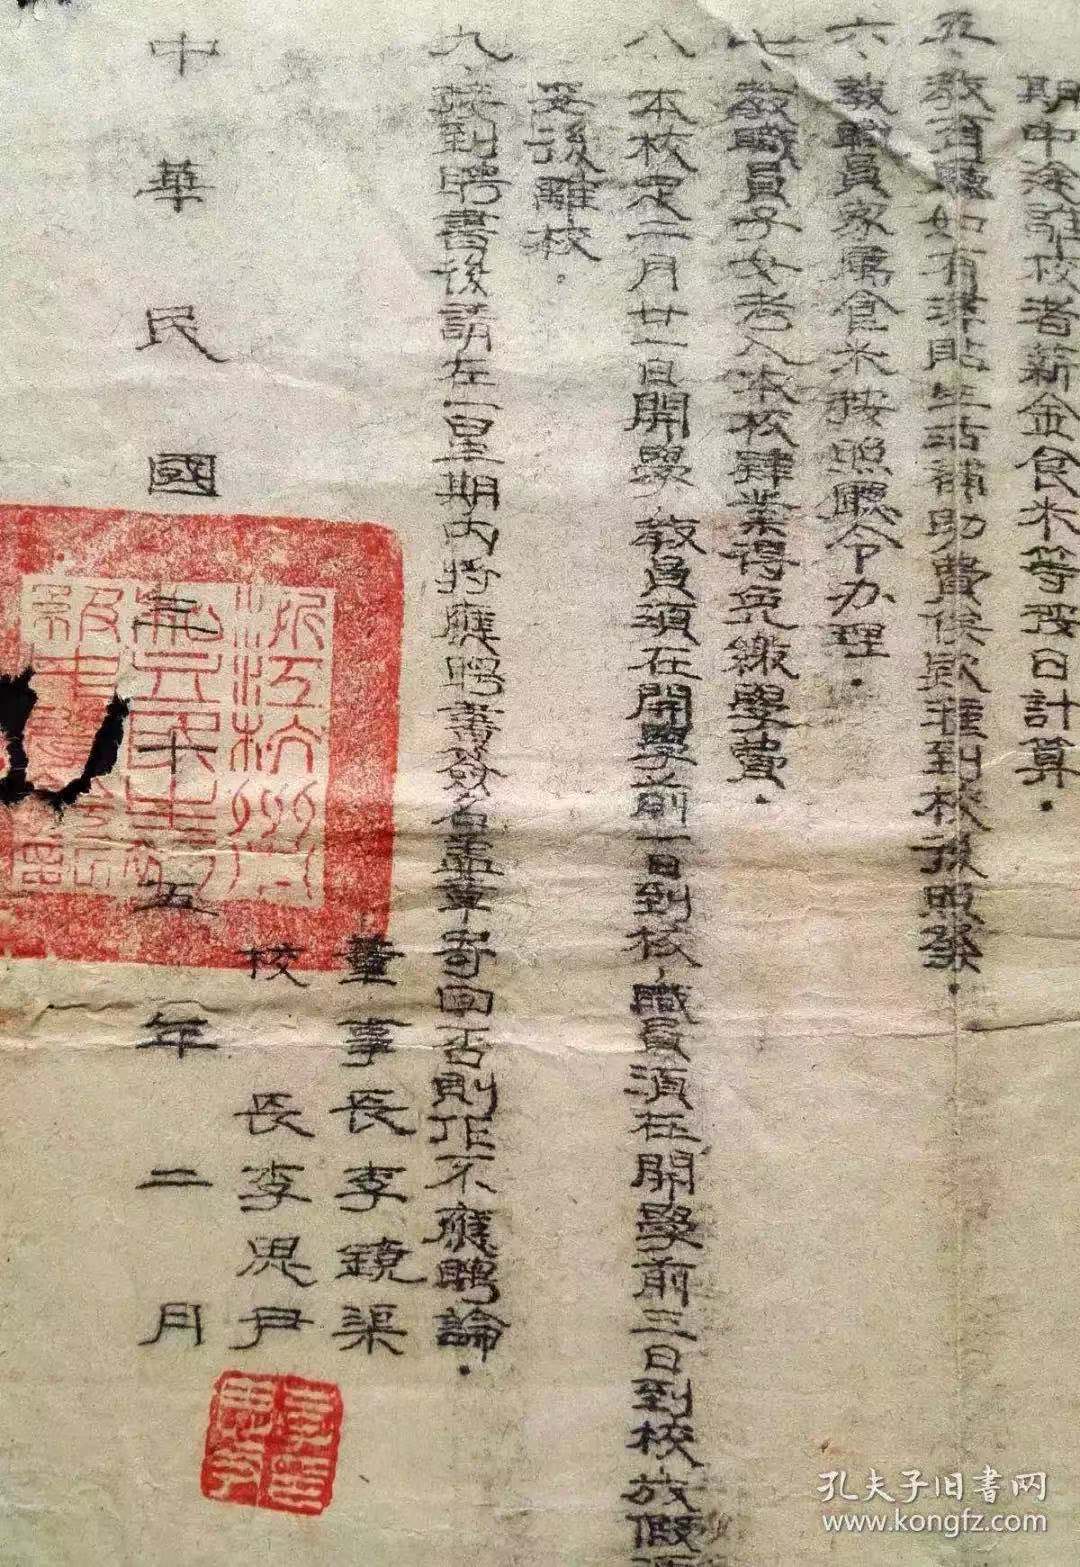 期中途離校者薪金食米等按日計算．
五、教育廳如有津貼生活補助費俟欵種到校後照發．
六、教職員家屬食米按照廳令办理．
七、教職員子女考入本校肄業得免繳學費．
八、本校定二月廿一日開學，教員須在開學前一日到校，職員須在開學前三日到校放假
後離校．
九、接到聘書後請在一星期內將應聘書簽名盖章寄回否則作不應聘論．
董事長李鏡渠
校長李思尹
中華民國三十五年二月
浙江杭州
孔夫子旧书网
www.kongfz.com